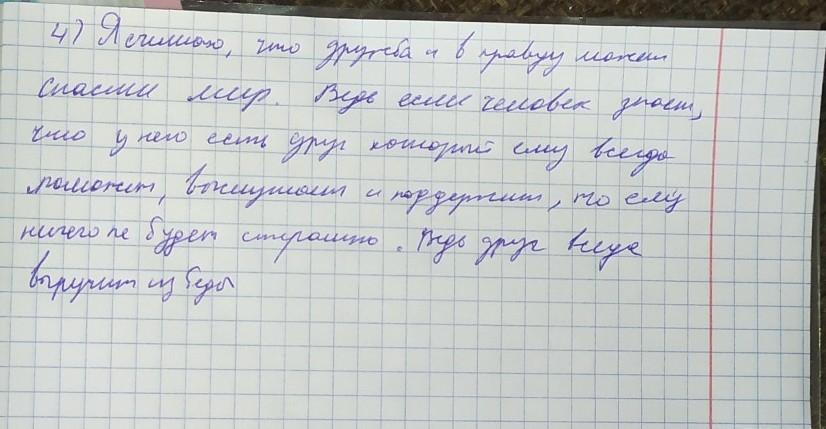 4) Я считаю, что дружба и в правду может
спасти мир. Ведь если человек знает,
что у него есть друг который ему всегда
поможет, выслушает и поддержит, то ему
ничего не будет страшно. Ведь друг
выручит из беды